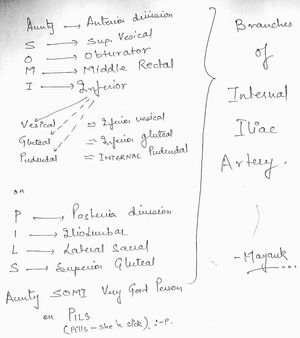 Aunty → Anterior division
S → Sup. Vesical
O → Obturator
M → Middle Rectal
I → Inferior
Vesical = Inferior vesical
Gluteal = Inferior gluteal
Pudendal = INTERNAL Pudendal
on
P → Posterior division
I → Iliolumbar
L → Lateral sacral
S → Superior Gluteal
Aunty SOMI Very Good Person
on PILS
(Pills - she's sick) :-P.
Branches
of
Internal
Iliac
Artery.
- Mayank...